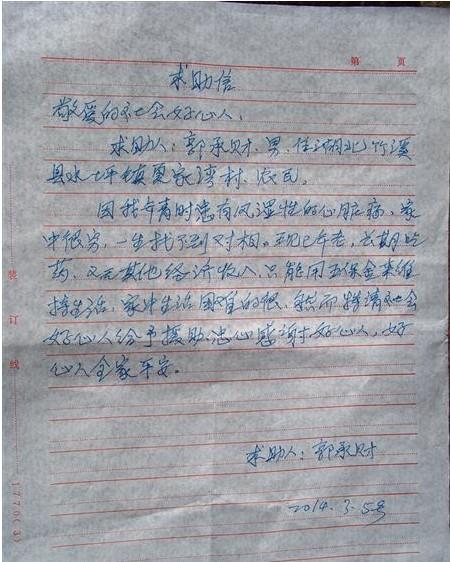 第 页
求助信
敬爱的社会好心人:
求助人:郭承财、男、住湖北竹溪
县水坪镇夏家湾村、农民。
因我年青时患有风湿性的心脏病,家
中很穷,一生找不到对相。现已年老,长期吃
药,又无其他经济收入,只能用五保金来维
持生活,家中生活困难的很,然而特请社会
好心人给予援助,忠心感谢好心人,好
心人全家平安。
求助人:郭承财
2014.3.5号
装订线
1770(3)